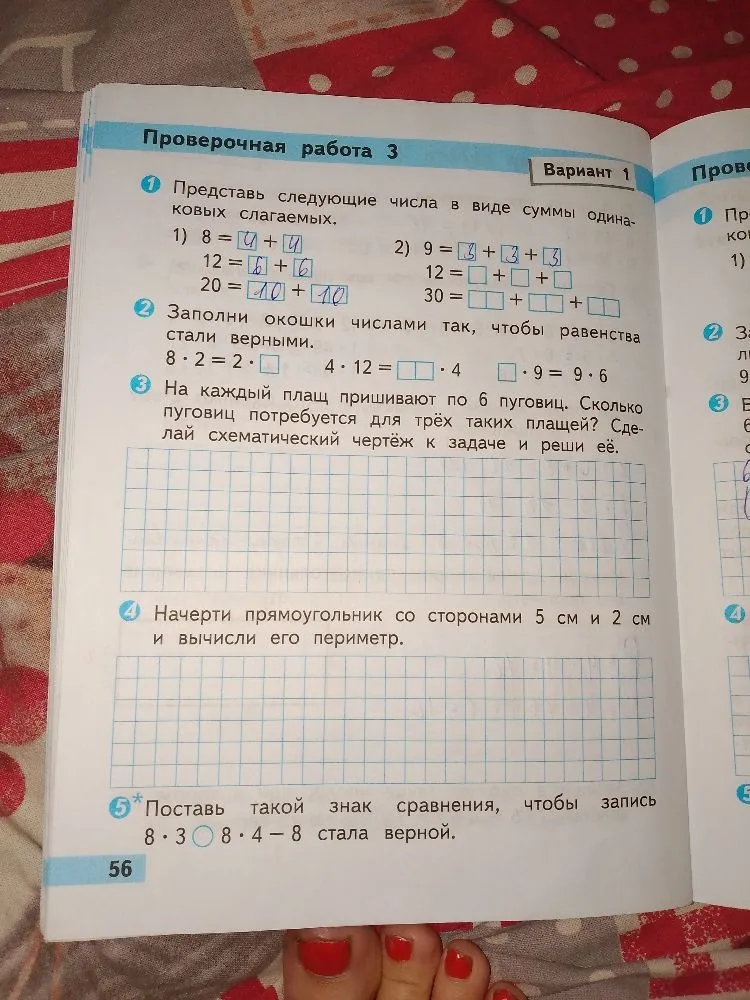 Проверочная работа 3
Вариант 1
1 Представь следующие числа в виде суммы одина-
ковых слагаемых.
1) 8 = 4 + 4
12 = 6 + 6
20 = 10 + 10
2) 9 = 3 + 3 + 3
12 = □ + □ + □
30 = □□ + □□ + □□
2 Заполни окошки числами так, чтобы равенства
стали верными.
8 · 2 = 2 · □ 4 · 12 = □□ · 4 □ · 9 = 9 · 6
3 На каждый плащ пришивают по 6 пуговиц. Сколько
пуговиц потребуется для трёх таких плащей? Сде-
лай схематический чертёж к задаче и реши её.
4 Начерти прямоугольник со сторонами 5 см и 2 см
и вычисли его периметр.
5* Поставь такой знак сравнения, чтобы запись
8 · 3 ○ 8 · 4 – 8 стала верной.
56
Прове
1 Пр
ко
1)
2 За
л
9
3 В
6
с
4
5